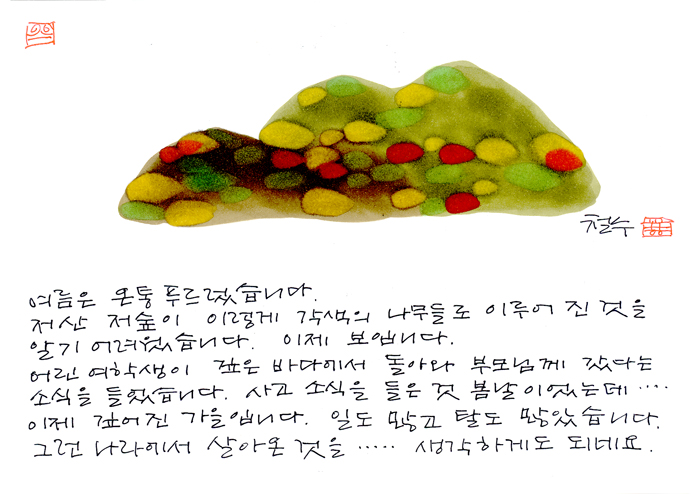 철수
여름은 온통 푸르렀습니다.
저산 저숲이 이렇게 각색의 나무들로 이루어 진 것을
알기 어려웠습니다. 이제 보입니다.
어린 여학생이 깊은 바다에서 돌아와 부모님께 갔다는
소식을 들었습니다. 사고 소식을 들은 것 봄날이었는데 ····
이제 깊어진 가을입니다. 일도 많고 탈도 많았습니다.
그런 나라에서 살아온 것을 ····· 생각하게도 되네요.